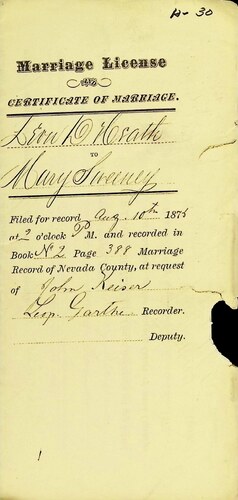 A-30
Marriage License
AND
CERTIFICATE OF MARRIAGE.
Leon D Heath
TO
Mary Sweeney
Filed for record Aug. 10th 1875
at 2 o'clock P M. and recorded in
Book No 2 Page 388 Marriage
Record of Nevada County, at request
of John Keiser
Leop. Garthe Recorder.
Deputy.
1